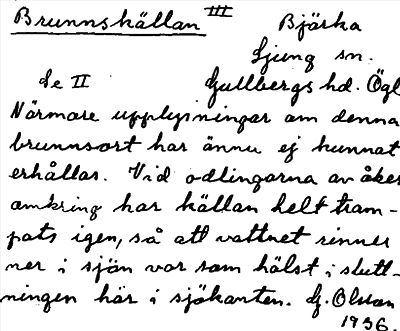 Brunnskällan III Bjärka
Ljung sn.
Se II Gullbergs hd. Ögl
Närmare upplysningar om denna
brunnsort har ännu ej kunnat
erhållas. Vid odlingarna av åker
omkring har källan helt tram-
pats igen, så att vattnet rinner
ner i sjön var som hälst i slutt-
ningen här i sjökanten. G. Olsson
1936.